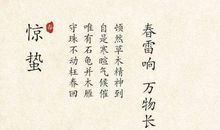 春雷响 万物长
顿然草木精神别
自是寒暄气候催
唯有石龟并木雁
守株不动任春回
惊蛰